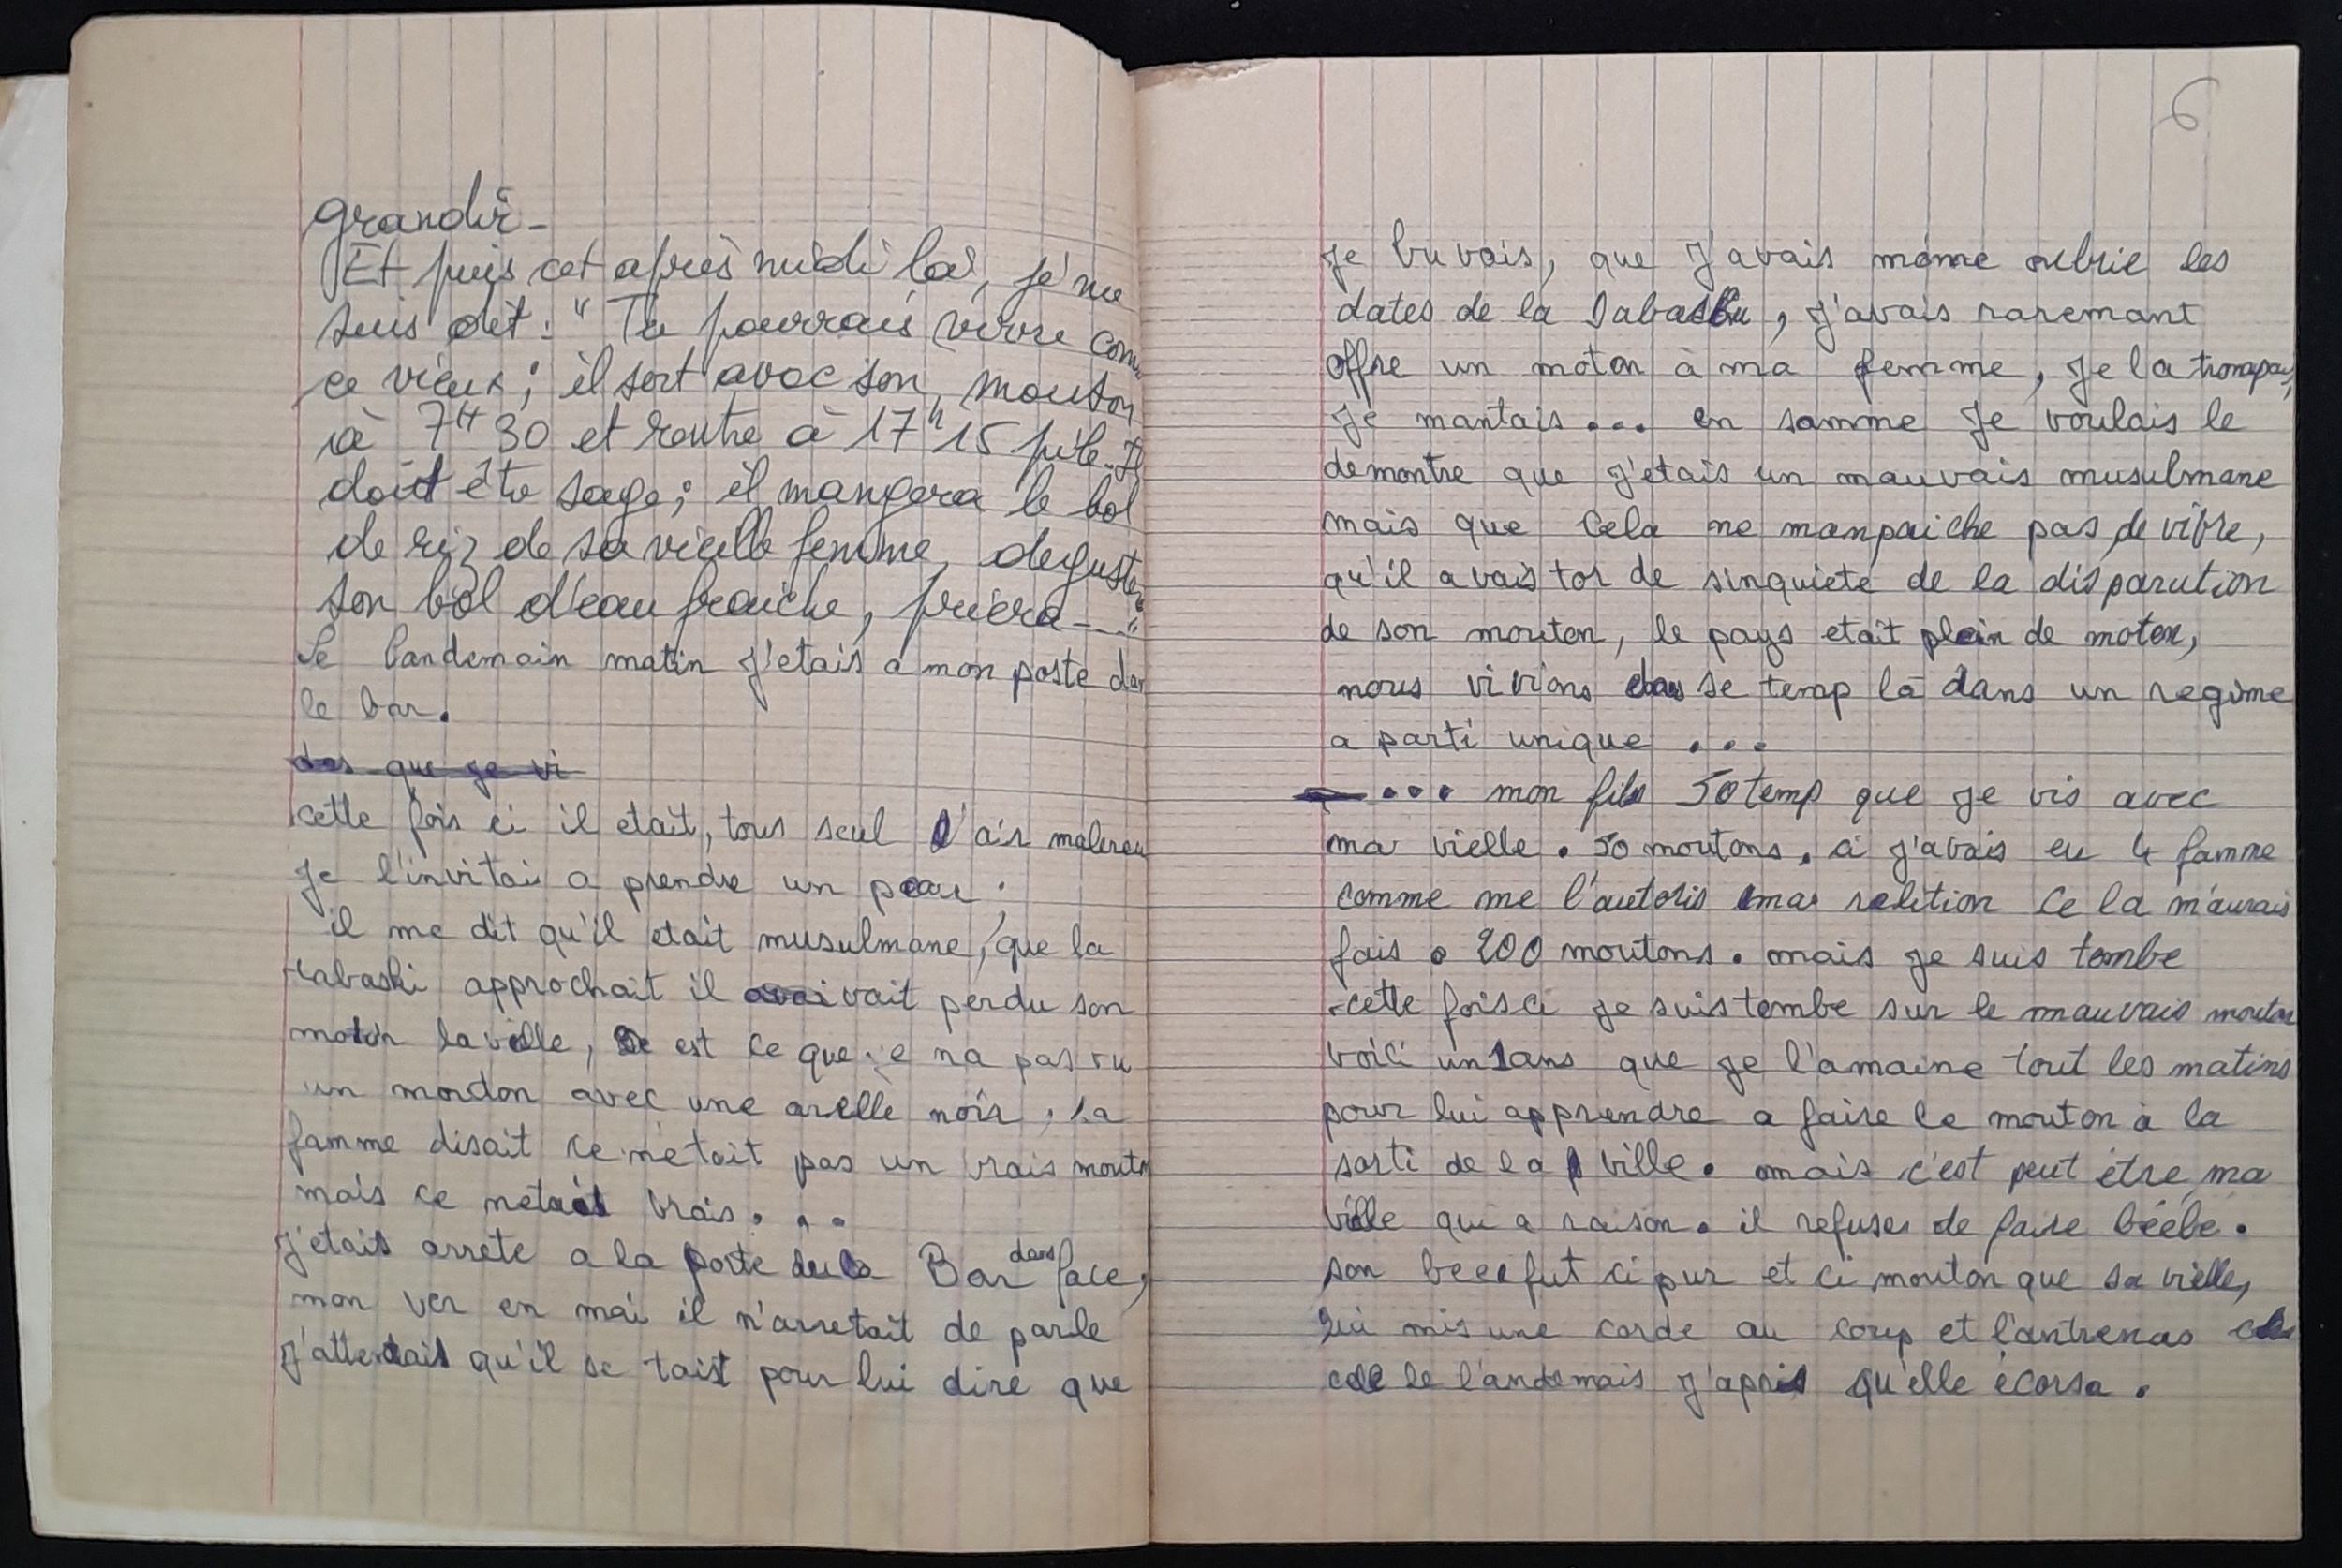 grandir-
Et puis cet après midi là, je me
suis dit : " Tu pourrais vivre comme
ce vieux ; il sort avec son mouton
à 7H 30 et rentre à 17h 15 pile. Il
doit être sage ; il mangera le bol
de riz de sa vieille femme, deguster
son bol d'eau fraiche, priera ---"
Le landemain matin j'etais a mon poste dan
le bar.
des que je vi
cette fois ci il etait, tous seul l'air malereu
Je l'invitai a prendre un
il me dit qu'il etait musulmane, que la
tabaski approchait il avait perdu son
la veille, est ce que je na pas vu
un mouton avec une orelle noir, sa
famme disait ce n'etait pas un vrais mouton
mais ce netait vrais. . .
j'etais arrete a la porte de la Bar dans face,
mon ver en mai il n'arretait de parle
J'attendais qu'il se taist pour lui dire que
6
je buvais, que j'avais même oublie les
dates de la , j'avais raremant
offre un moton à ma femme, je la trompais,
je mantais ... en somme je voulais le
demontre que j'etais un mauvais musulmane
mais que cela ne manpaiche pas de vivre,
qu'il avais tor de sinquiete de la disparution
de son mouton, le pays etait plein de moton,
nous vivions se temp là dans un regime
a parti unique ...
... mon fils 50 temp que je vis avec
ma vielle. 50 moutons. ci j'avais eu 4 famme
comme me l'autoris ma relition ce la m'aurais
fais 200 moutons. mais je suis tombe
-cette fois ci je suis tombe sur le mauvais mouton
voici un 1 ans que je l'amaine tout les matins
pour lui apprendre a faire le mouton à la
sorti de la ville. mais c'est peut être ma
vielle qui a raison. il refuser de faire béebe.
son beee fut ci pur et ci mouton que sa vielle,
lui mis une corde au coup et l'antrenas
le l'andemais j'apris qu'elle écorsa.